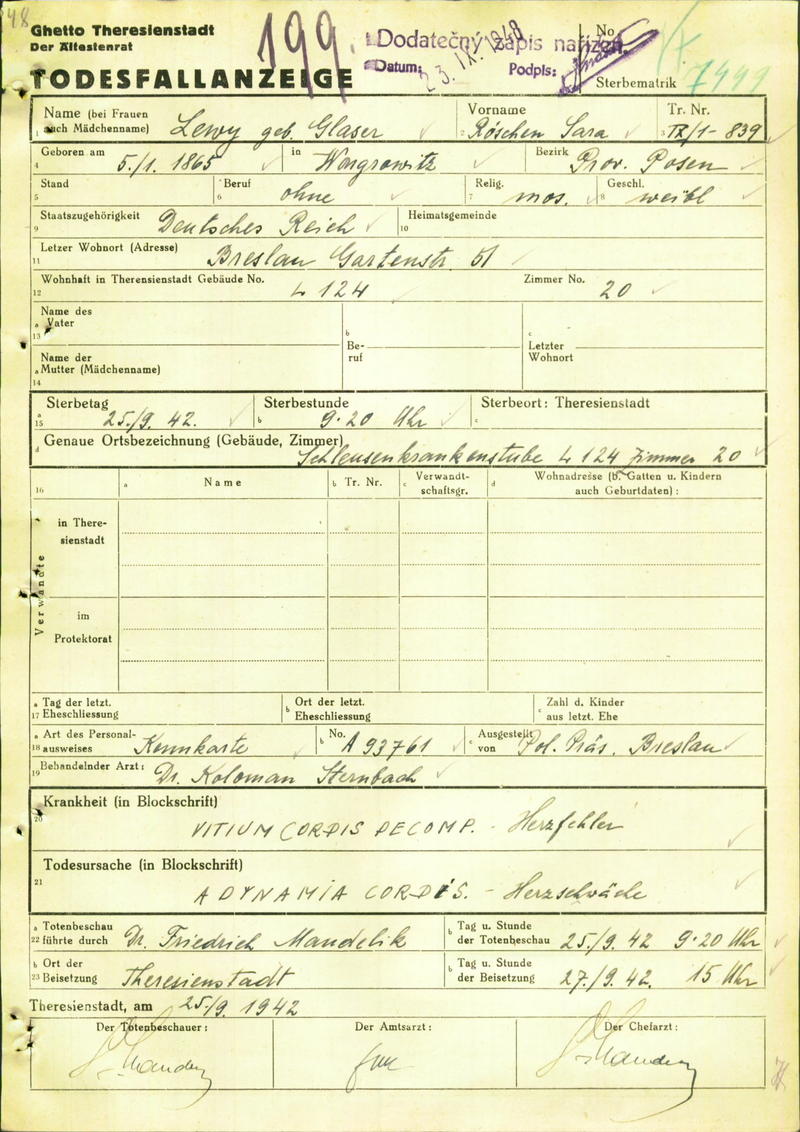 48
Ghetto Theresienstadt
Der Ältestenrat
199.
Dodatečný zápis nařízen.
Datum: 23. IX. 1948 Podpis:
No
Sterbematrik 7499
TODESFALLANZEIGE
Name (bei Frauen auch Mädchenname) Lewy geb. Glaser
Vorname Röschen Sara
Tr. Nr. IX/1-839
Geboren am 5./1. 1865 in Wongrowitz Bezirk Prov. Posen
Stand Beruf ohne Relig. mos. Geschl. weibl
Staatszugehörigkeit Deutsches Reich Heimatsgemeinde
Letzer Wohnort (Adresse) Breslau Gartenstr. 51
Wohnhaft in Therensienstadt Gebäude No. L 124 Zimmer No. 20
Name des Vater
Be-ruf
Letzter Wohnort
Name der Mutter (Mädchenname)
Sterbetag 25./9. 42. Sterbestunde 9·20 Uhr Sterbeort: Theresienstadt
Genaue Ortsbezeichnung (Gebäude, Zimmer) Schleusenkrankenstube L 124 Zimmer 20
16 a Name b Tr. Nr. c Verwandt-schaftsgr. d Wohnadresse (b. Gatten u. Kindern auch Geburtdaten):
Verwandte
in There-sienstadt
im Protektorat
a 17 Tag der letzt. Eheschliessung b Ort der letzt. Eheschliessung c Zahl d. Kinder aus letzt. Ehe
a 18 Art des Personal-ausweises Kennkarte b No. A 93761 c Ausgestellt von Pol. Präs. Breslau
19 Behandelnder Arzt: Dr. Koloman Sternbach
20 Krankheit (in Blockschrift)
VITIUM CORDIS DECOMP. - Herzfehler
21 Todesursache (in Blockschrift)
ADYNAMIA CORDIS. - Herzschwäche
a 22 Totenbeschau führte durch Dr. Friedrich Mandelik b Tag u. Stunde der Totenbeschau 25./9. 42 9·20 Uhr
b 23 Ort der Beisetzung Theresienstadt b Tag u. Stunde der Beisetzung 27./9. 42. 15 Uhr
Theresienstadt, am 25./9. 1942
Der Totenbeschauer: Der Amtsarzt: Der Chefarzt: